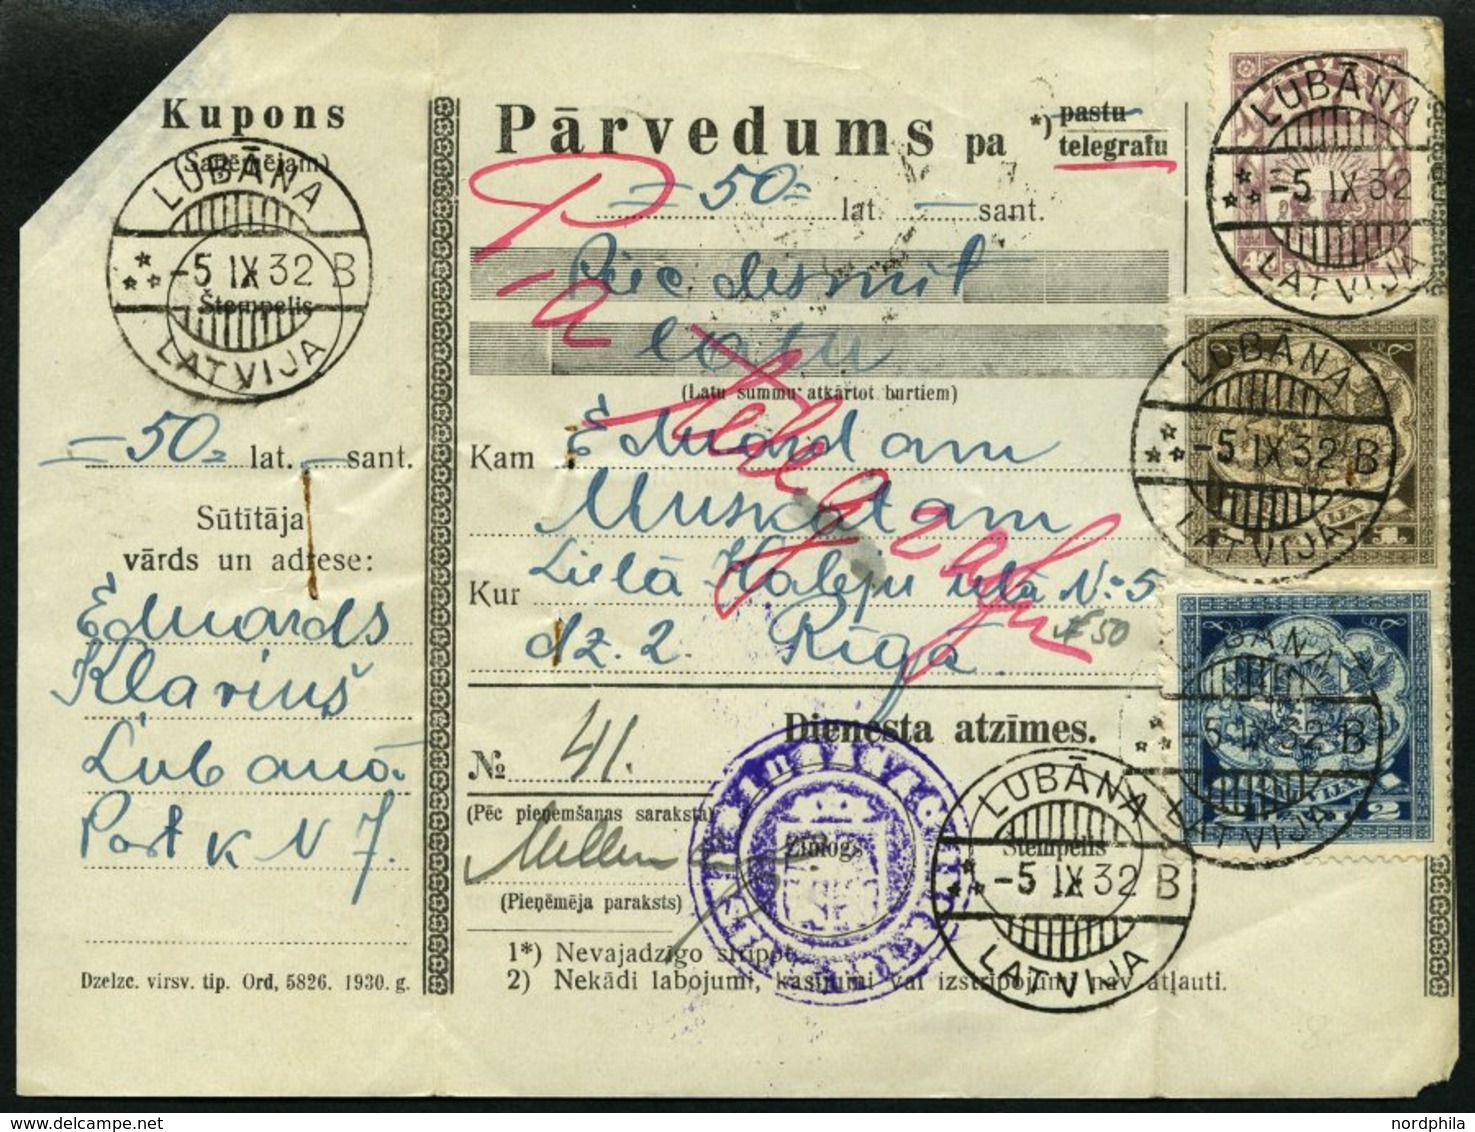 Kupons
(Saņēmējam)
LUBĀNA
-5 IX 32 B
Štempelis
LATVIJA
=50= lat. — sant.
Sūtītāja
vārds un adrese:
Eduards
Klaviņš
Lubānā.
Past k N 7.
Dzelzc. virsv. tip. Ord, 5826. 1930. g.
Pārvedums pa *) pastu
telegrafu
=50= lat. — sant.
P-a
Piecdesmit
latu
(Latu summu atkārtot burtiem)
telegrafu
Kam Eduardam
Muskatam
Kur Lielā Kalēju ielā № 5
dz. 2. Rīgā
50
Dienesta atzīmes.
№ 41.
(Pēc pieņemšanas saraksta)
(Pieņēmēja paraksts)
Zīmogs
Štempelis
LUBĀNA
-5 IX 32 B
LATVIJA
1*) Nevajadzīgo strīpot.
2) Nekādi labojumi, kasījumi vai izstrīpojumi nav atļauti.
LUBĀNA
-5 IX 32
LATVIJA
40
LUBĀNA
-5 IX 32 B
LATVIJA
1
BĀNA
-5 IX 32 B
LATVIJA
2
nordphila
www.delcampe.net